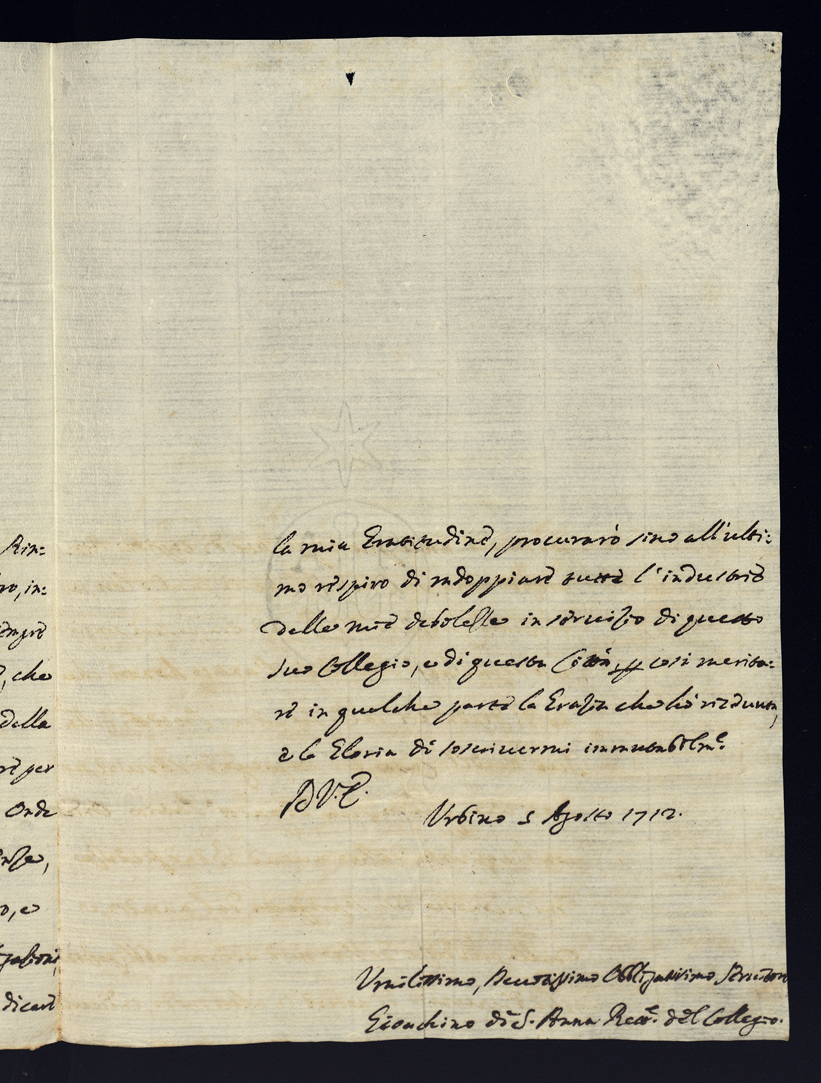 Rin:
ro, in:
sempre
, che
della
re per
Onde
o, e
dicare
la mia Gratitudine, procurarò sino all'ulti:
mo respiro di radoppiare tutte l'industrie
delle mie debolezze in servizio di questo
suo Collegio, e di questa Città, così merita:
re in qualche parte la Grazia che hò ricevuta,
e la Gloria di soscrivermi immutabilm.e
D.V.E.
Urbino 5 Agosto 1712.
Umilissimo, Devotissimo Obbligatissimo, Servitore
Gioachino di S. Anna Rett.e del Collegio.